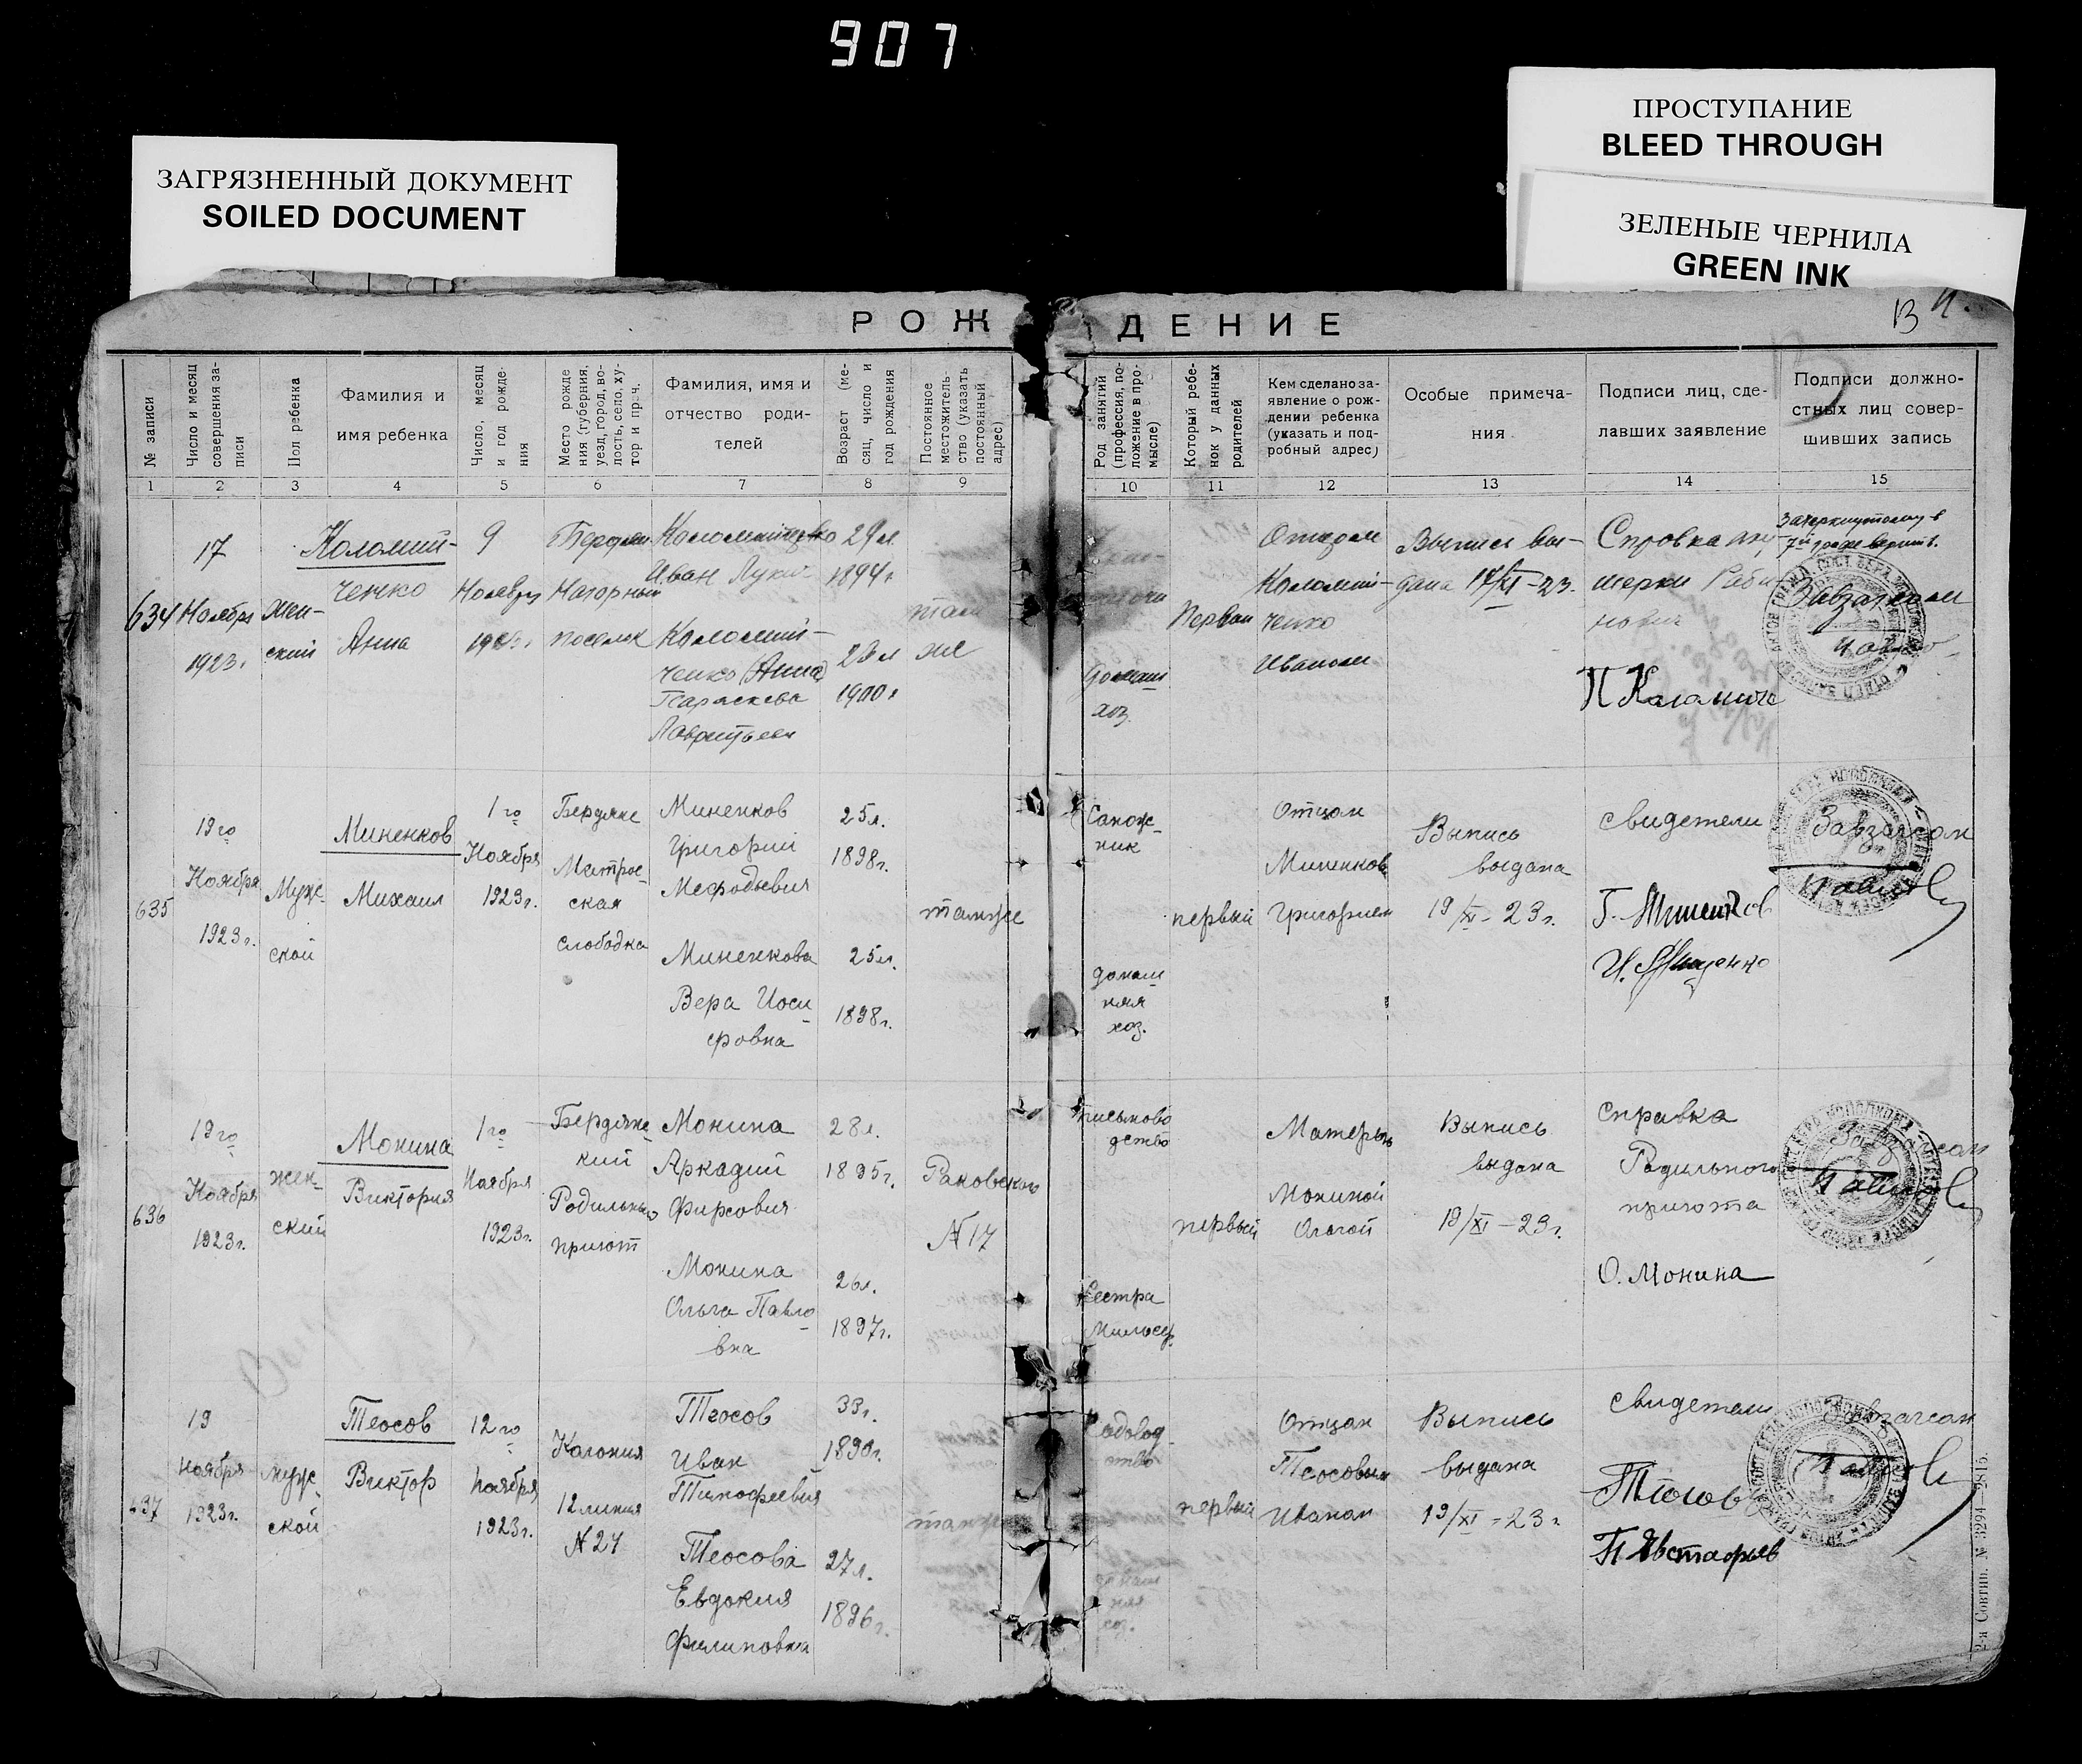 907
ПРОСТУПАНИЕ
BLEED THROUGH
ЗАГРЯЗНЕННЫЙ ДОКУМЕНТ
SOILED DOCUMENT
ЗЕЛЕНЫЕ ЧЕРНИЛА
GREEN INK
РОЖДЕНИЕ
№ записи
Число и месяц
совершения за-
писи
Пол ребенка
Фамилия и
имя ребенка
Число, месяц
и год рожде-
ния
Место рожде
ния (губерния,
уезд, город, во-
лость, село, ху-
тор и пр.ч.
Фамилия, имя и
отчество роди-
телей
Возраст (ме-
сяц, число и
год рождения
Постоянное
местожитель-
ство (указать
постоянный
адрес)
Род занятий
(профессия, по-
ложение в про-
мысле)
Который ребе-
нок у данных
родителей
Кем сделано за-
явление о рож-
дении ребенка
(указать и под-
робный адрес)
Особые примеча-
ния
Подписи лиц, сде-
лавших заявление
Подписи должно-
стных лиц совер-
шивших запись
1 2 3 4 5 6 7 8 9 10 11 12 13 14 15
634
17
Ноября
1923г.
жен-
ский
Коломий-
ченко
Анна
9
Ноября
Нагорный
поселок
Иван
29 л.
1894г.
Коломий-
ченко (Анна)
Параскева
23 л
1900г
там
же
домаш
хоз.
Первый
Отцом
Коломий-
ченко
Иваном
Выпись вы-
дана 17/XI-23.
Справка
635
19го
Ноября
1923г.
Муж-
ской
Миненков
Михаил
1го
Ноября
1923г.
Бердянс
Матрос-
ская
слободка
Миненков
Григорий
Мефодьевич
25л.
1898г.
Миненкова
Вера Иоси
фовна
25л.
1898г.
там же
Сапож-
ник
домаш
няя
хоз.
первый
Отцом
Миненков
Григорием
Выпись
выдана
19/XI-23г.
свидетели
Завзагсом
636
19го
Ноября
1923г.
жен-
ский
Монина
Виктория
1го
Ноября
1923г.
Бердянс
кий
Родильный
приют
Монина
Аркадий
Фирсович
28л.
1895г.
Монина
Ольга Павло
вна
26л.
1897г.
№17
Сестра
Милосер.
первый
Матерью
Мониной
Ольгой
Выпись
выдана
19/XI-23г.
Справка
Родильного
приюта
О. Монина
Завзагсом
637
19
Ноября
1923г.
муж-
ской
Теосов
Виктор
12го
ноября
1923г.
Колония
12 линия
№ 27
Теосов
Иван
Тимофеевич
33г.
1890г.
Теосова
Евдокия
Филиповна
27л.
1896г.
Садовод
ство
домаш
няя
хоз.
первый
Отцом
Теосовым
Иваном
Выпись
выдана
19/XI-23г
свидетели
Завзагсом
2-я Совтип. № 3294—2815.